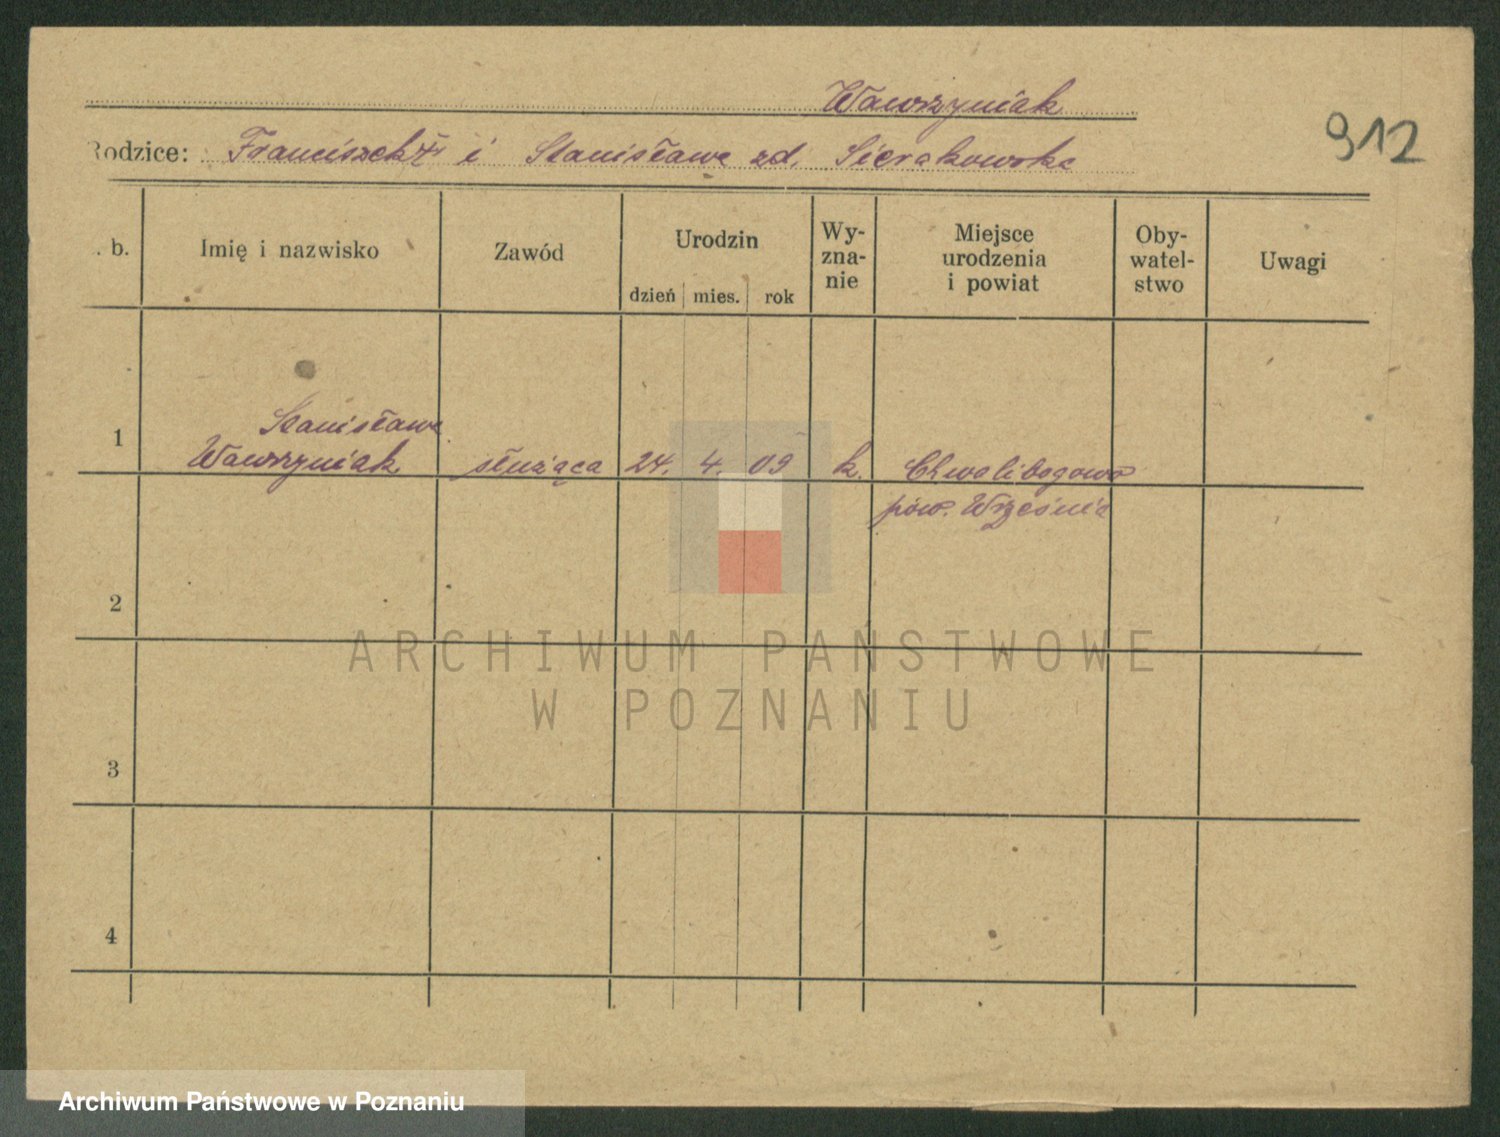 Wawrzyniak
912
Rodzice: Franciszek i Stanisława zd. Sierakowska
. b.
Imię i nazwisko
Zawód
Urodzin
dzień mies. rok
Wy-
zna-
nie
Miejsce
urodzenia
i powiat
Oby-
watel-
stwo
Uwagi
Stanisława
1 Wawrzyniak służąca 24. 4. 09 k. Chwalibogowo
pow. Września
2
3
4
ARCHIWUM PAŃSTWOWE
W POZNANIU
Archiwum Państwowe w Poznaniu